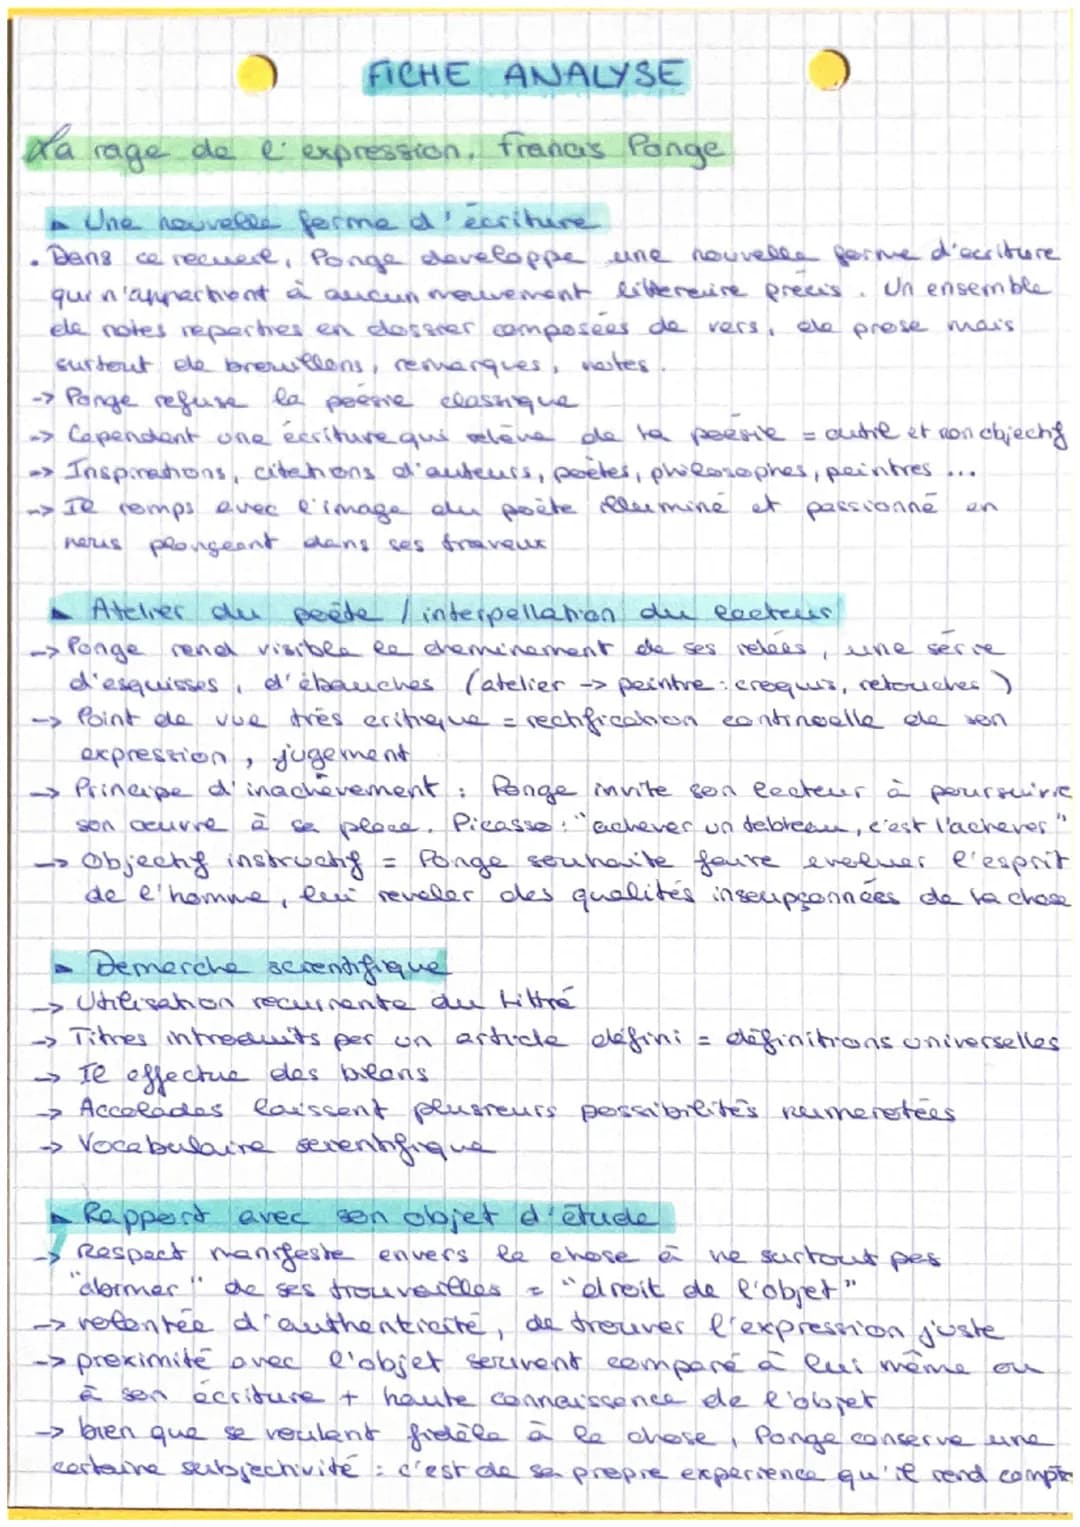 FICHE ANALYSE
La rage de l'expression, Francis Ponge
Une nouvelle forme d'écriture
. Dans ce recueil, Ponge developpe une nouvelle forme d'écriture
qui n'appartient à aucun mouvement littéraire précis. Un ensemble
de notes reparties en dossier composées de vers, de prose mais
surtout de brouillons, remarques, notes.
-> Ponge refuse la poésie classique
-> Cependant une écriture qui relève de la poésie = outil et non objectif
-> Inspirations, citations d'auteurs, poètes, philosophes, peintres ...
-> Il romps avec l'image du poète illuminé et passionné en
nous plongeant dans ses travaux
Atelier du poète / interpellation du lecteur
-> Ponge rend visible le cheminement de ses idées, une série
d'esquisses, d'ébauches (atelier -> peintre : croquis, retouches)
-> Point de vue très critique = rectification continuelle de son
expression, jugement
-> Principe d'inachèvement : Ponge invite son lecteur à poursuivre
son oeuvre à sa place. Picasso : "achever un tableau, c'est l'achever"
-> Objectif instructif = Ponge souhaite faire evoluer l'esprit
de l'homme, lui reveler des qualités insoupçonnées de la chose
Demarche scientifique
-> Utilisation recurrente du Littré
-> Titres introduits par un article défini = définitions universelles
-> Il effectue des bilans
-> Accolades laissent plusieurs possibilités numerotées
-> Vocabulaire scientifique
Rapport avec son objet d'étude
-> Respect manifeste envers la chose à ne surtout pas
"abimer" de ses trouvailles = "droit de l'objet"
-> volontée d'authenticité, de trouver l'expression juste
-> proximité avec l'objet souvent comparé à lui même ou
à son écriture + haute connaissance de l'objet
-> bien que se voulant fidèle à la chose, Ponge conserve une
certaine subjectivité : c'est de sa propre experience qu'il rend compte